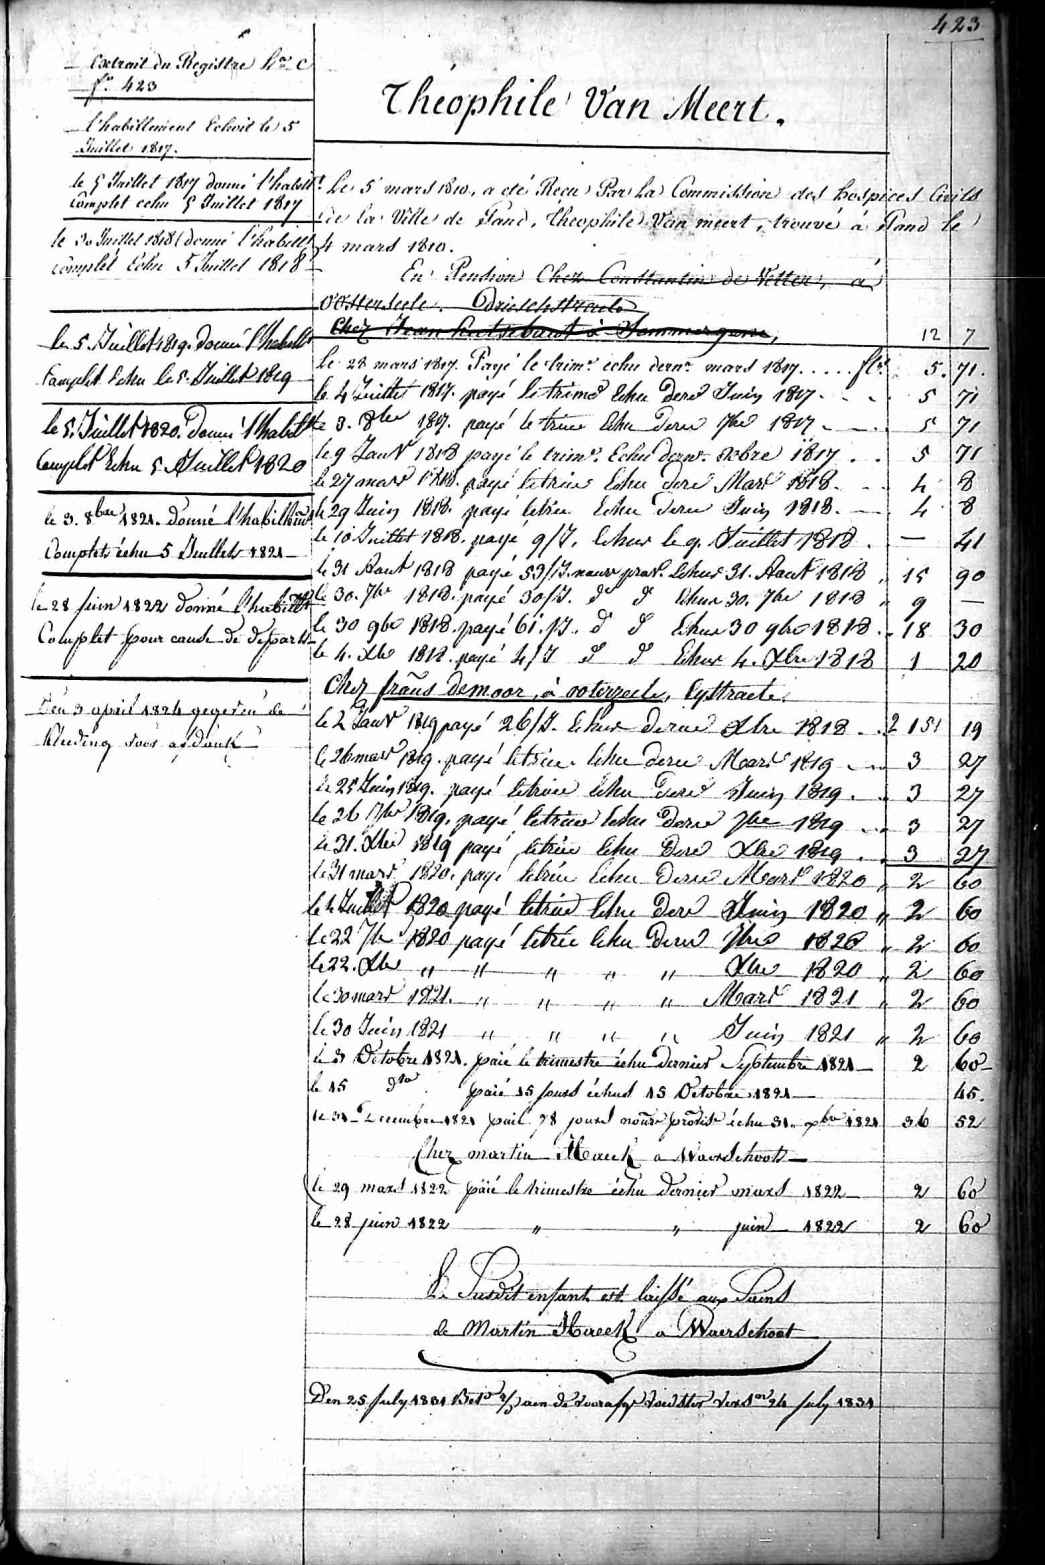 423
Extrait du Registre Nro C
fo. 423
l'habillement Echoit le 5
Juillet 1817.
le 5 Juillet 1817 donné l'habillt
Complet echu 5 Juillet 1817
le 30 Juillet 1818 donné l'habillt
complèt Echu 5 Juillet 1818
le 5 Juillet 1819. donné l'habillt
Complet Echu le 5 Juillet 1819
le 5 Juillet 1820. Donné l'habillt
Complet Echu 5 Juillet 1820
le 3. 8bre 1821. donné l'habillemt
Complet échu 5 Juillet 1821
le 28 Juin 1822 donné l'habillt
Complet pour cause de départ
Den 3 april 1824 gegeven de
kleeding voor
Théophile Van Meert.
Le 5 mars 1810, a été Reçu Par La Commission des hospices Civils
de la Ville de Gand, Théophile Van meert, trouvé à Gand le
4 mars 1810.
En Pension Chez Constantin de Vetter, à
Oosterseele. Driesch Straete
Chez Jean à Sommergem, 12 7
le 28 mars 1817. Payé le trime. echu dernr. mars 1817 . . . . fls. 5. 71.
le 4 Juillet 1817. payé le trime Echu dere Juin 1817 - - - 5 71
le 3. 8bre 1817. payé le trime Echu dere 7bre 1817 - - 5 71
le 9 Janv 1818 payé le trime. Echu dernr. xbre 1817 . . 5 71
le 27 mars 1818. payé le trime Echu dere Mars 1818. - - 4 8
le 29 Juin 1818. payé le trime Echu dere Juin 1818. - 4 8
le 10 Juillet 1818. payé 9/J. Echus le 9. Juillet 1818 . — 41
le 31 Aout 1818 payé 53/J. Echus 31. Aout 1818 " 15 90
le 30. 7bre 1818. payé 30/J. do do Echus 30. 7bre 1818 " 9 —
le 30 9bre 1818. payé 61./J. do do Echus 30 9bre 1818 . . 18 30
le 4. Xbre 1818. payé 4/J do do Echus 4. Xbre 1818 1 20
Chez frans demoor, à ooterzeele, Eystraete.
le 2 Janv 1819 payé 26/J. Echus derne Xbre 1818 . . 2 19
le 26 mars 1819. payé le trime Echu dere Mars 1819 . . 3 27
le 25 Juin 1819. payé le trime Echu dere Juin 1819 . . 3 27
le 26 7bre 1819. payé le trime Echu dere 7bre 1819 . . 3 27
le 31. Xbre 1819 payé le trime Echu dere Xbre 1819 . . 3 27
le 31 mars 1820. payé le trime Echu dere Mars 1820 " 2 60
le 4 Juillet 1820 payé le trime Echu dere Juin 1820 " 2 60
le 22 7bre 1820 payé le trime Echu dere 7bre 1820 " 2 60
le 22. Xbre " " " " " Xbre 1820 " 2 60
le 30 mars 1821. " " " " " Mars 1821 " 2 60
le 30 Juin 1821 " " " " Juin 1821 " 2 60
le 3 Octobre 1821. paié le trimestre échu dernier Septembre 1821 — 2 60
le 15 dto paié 15 jours échus 15 Octobre 1821 — 45.
le 31 Decembre 1821 paié 78 jours échu 31. xbre 1821 36 52
Chez martin Haeck a Waerschoot —
le 29 mars 1822 païé le trimestre échu dernier mars 1822 — 2 60
le 28 juin 1822 " " juin 1822 2 60
Le Susdit enfant est laissé aux Soins
de Martin Haeck a Waerschoot
Den 25 July 1831 aen de 24 July 1831